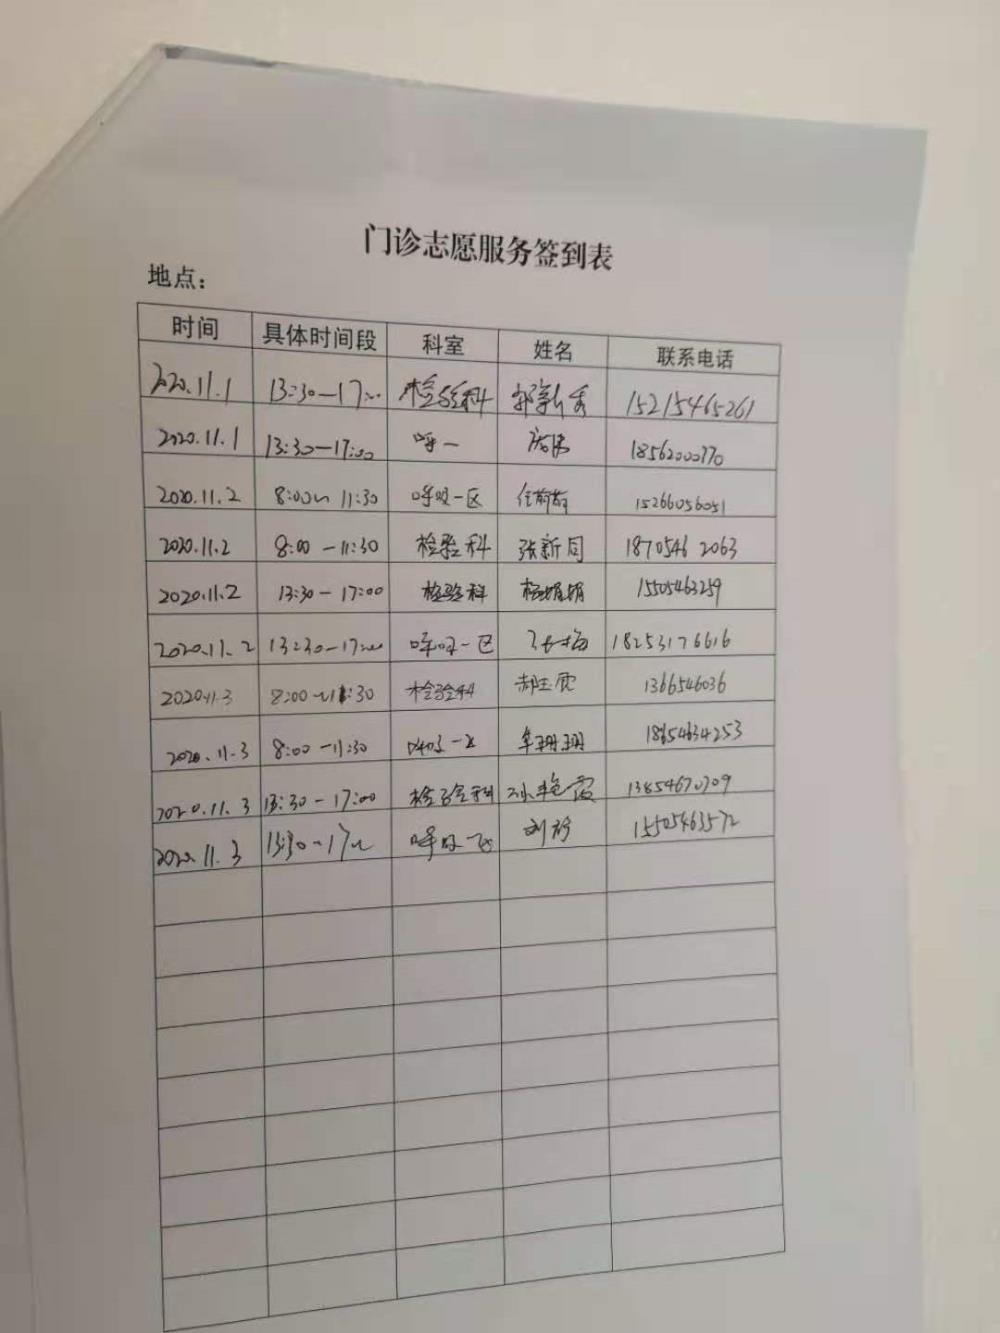 门诊志愿服务签到表
地点：
时间 具体时间段 科室 姓名 联系电话
2020.11.1 13:30—17:00 检验科 郭新秀 15215465261
2020.11.1 13:30—17:00 呼一 18562000770
2020.11.2 8:00~11:30 呼吸一区 任前前 15266056051
2020.11.2 8:00-11:30 检验科 张新同 1870546 2063
2020.11.2 13:30-17:00 检验科 杨娟娟 15505463259
2020.11.2 13:30-17:00 呼吸一区 张梅 18253176616
2020.11.3 8:00~11:30 检验科 郝玉霞 1366546036
2020.11.3 8:00-11:30 呼吸一区 牟珊珊 18654634253
2020.11.3 13:30-17:00 检验科 孙艳霞 13854670709
2020.11.3 13:30-17:00 呼吸一区 15505463572